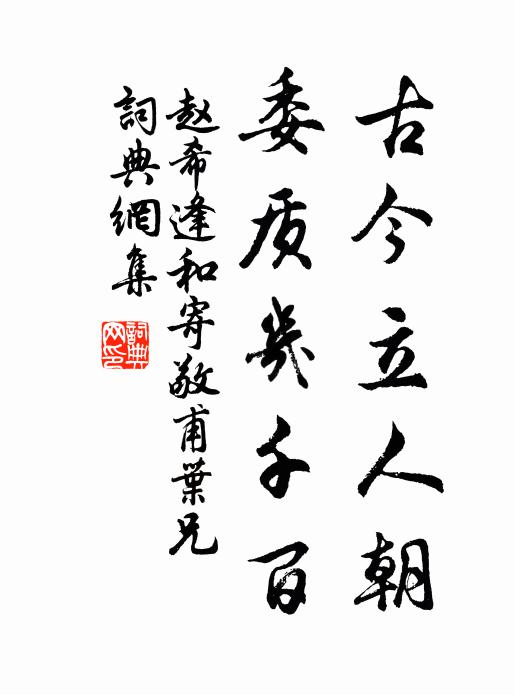 古今立人朝
委质幾千百
赵希逢和寄敬甫葉兄
詞典網集
詞典网印